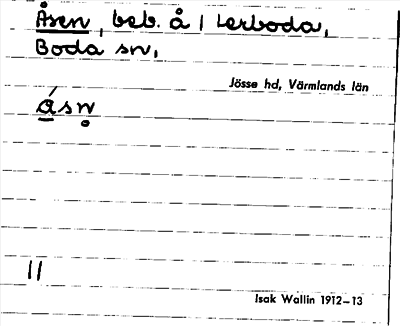 Åsen, beb. å 1 Lerboda,
Boda sn,
Jösse hd, Värmlands län
ǻsn̥
11
Isak Wallin 1912–13